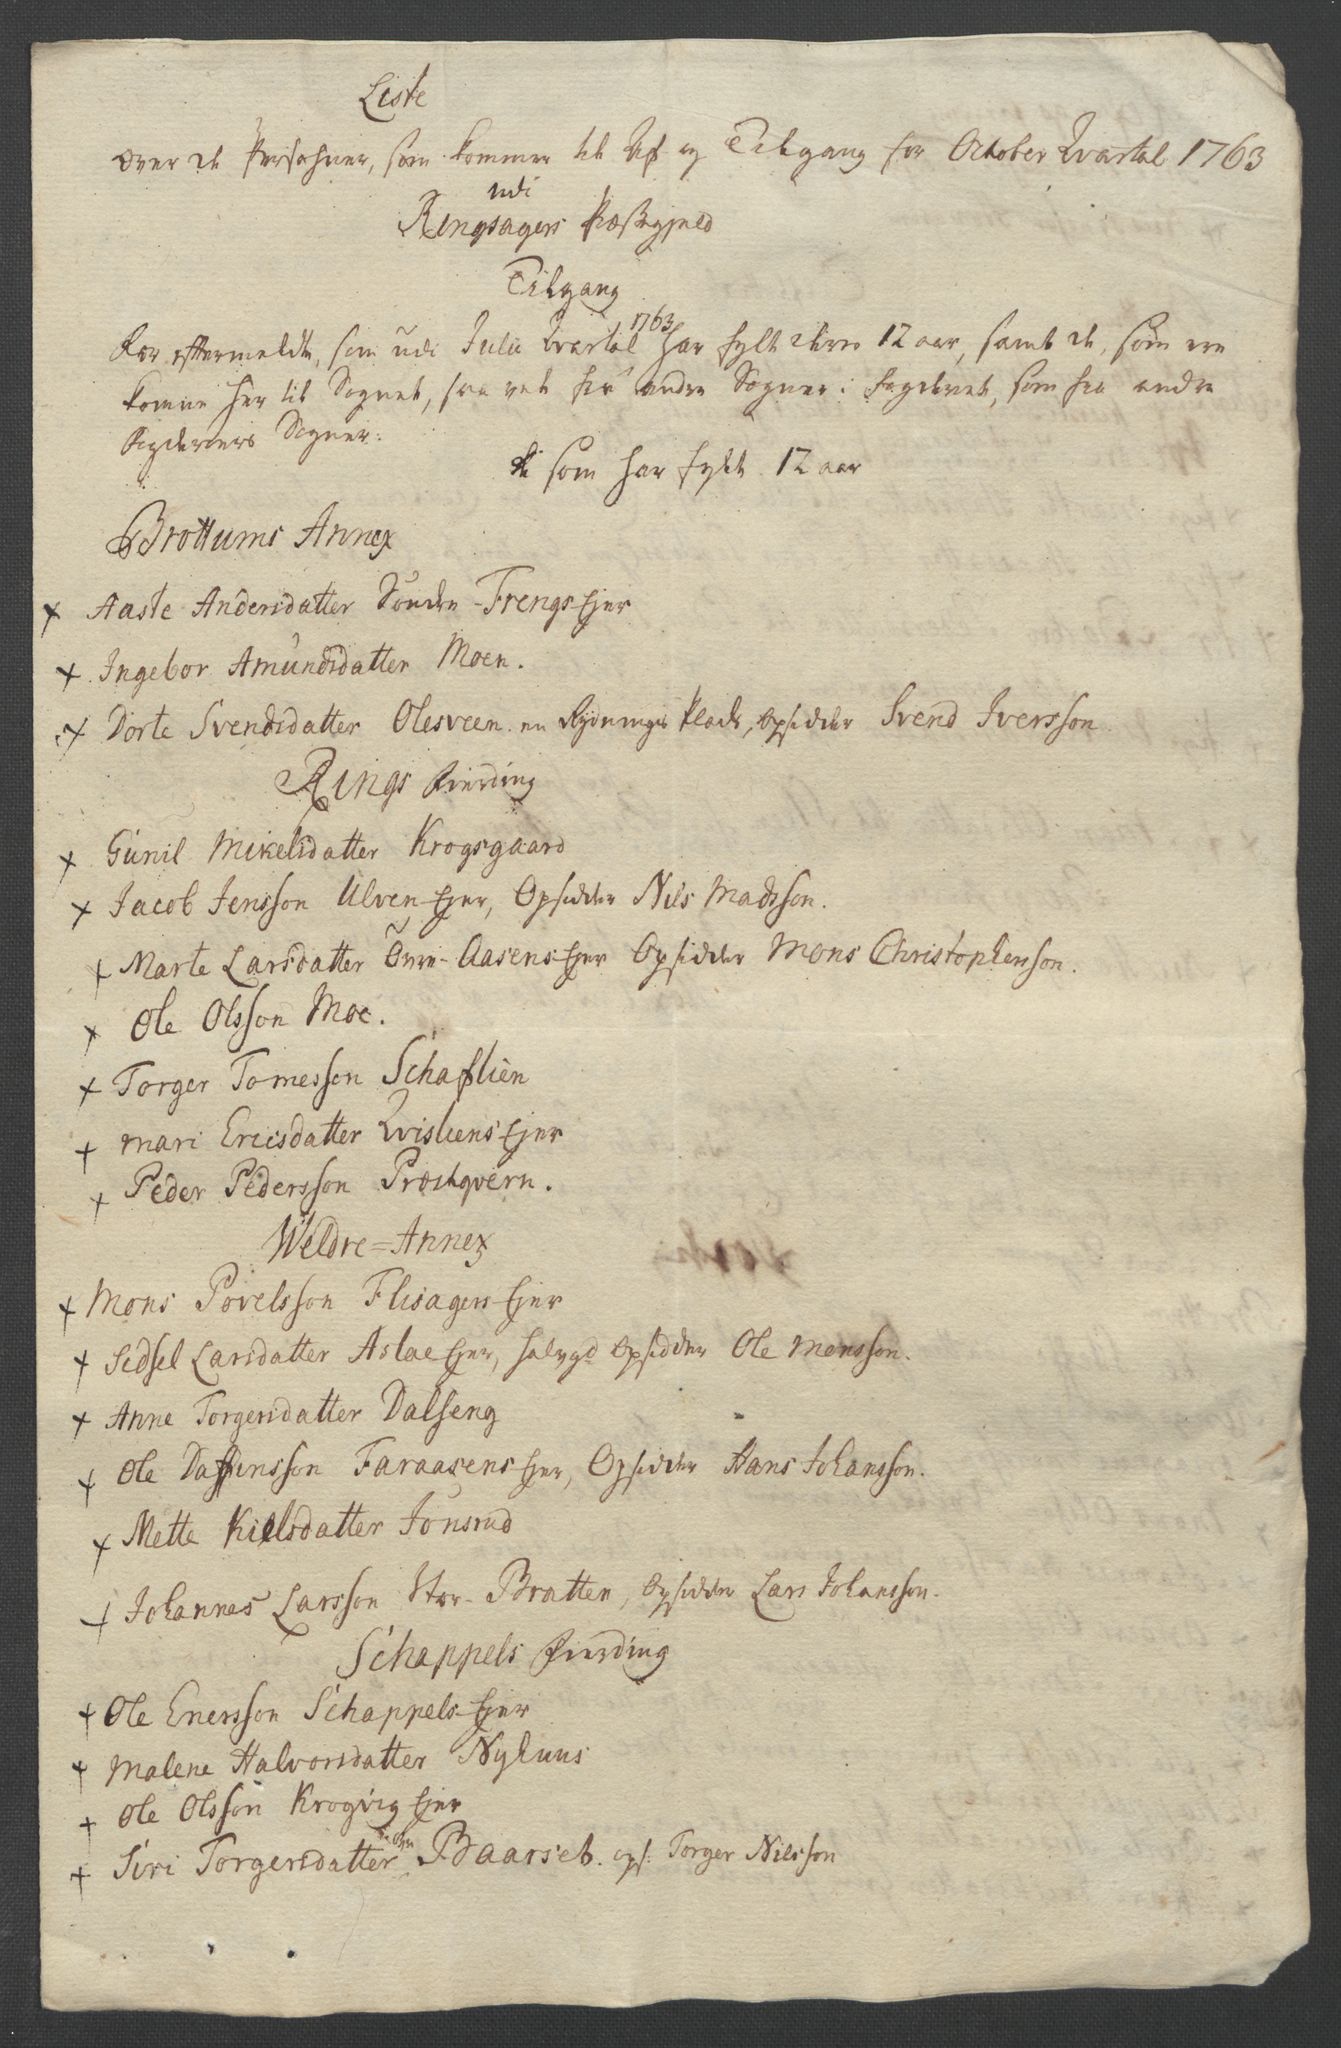 Liste
over de Persohner, som kommer til Af- og Tilgang for October Qvartal 1763
udi
Ringsagers Præstegield
Tilgang
Er efftermeldte, som udi Julii Qvartal 1763 har fylt deres 12 aar, samt de, som ere
komne her til Sognet, saa vel fra andre Sogner i Fogderiet, som fra andre
Fogderiers Sogner:
de som har fylt 12 aar
Brottums Annex
+ Aaste Andersdatter Søndre-Frengs Ejer
+ Ingebor Amundsdatter Moen.
+ Dorte Svendsdatter Olesveen en Rydnings Plads, Opsidder Svend Iversson
Rings Fierding
+ Gunil Mikelsdatter Krogsgaard
+ Jacob Jensson Ulven-Ejer, Opsidder Nils Madsson.
+ Marte Larsdatter Øvre-Aasens Ejer Opsidder Mons Christophersson.
+ Ole Olsson Moe.
+ Torger Tomesson Schaflien
+ Mari Ericsdatter Qvisliens Ejer
+ Peder Pedersson Præstqvern.
Weldre=Annex
+ Mons Povelsson Flisagers Ejer
+ Sidsel Larsdatter Aslae Ejer, Opsidder Ole Monsson.
+ Anne Torgersdatter Dalseng
+ Ole Daffinsson Faraasens Ejer, Opsidder Hans Johansson.
+ Mette Kielsdatter Jonsrud
+ Johannes Larsson Stor-Bratten, Opsidder Lars Johansson.
Schappels Fierding
+ Ole Enersson Schappels Ejer
+ Malene Halvorsdatter Nyhuus
+ Ole Olsson Krogvig Ejer
+ Siri Torgersdatter Baarset. ops: Torger Nilsson